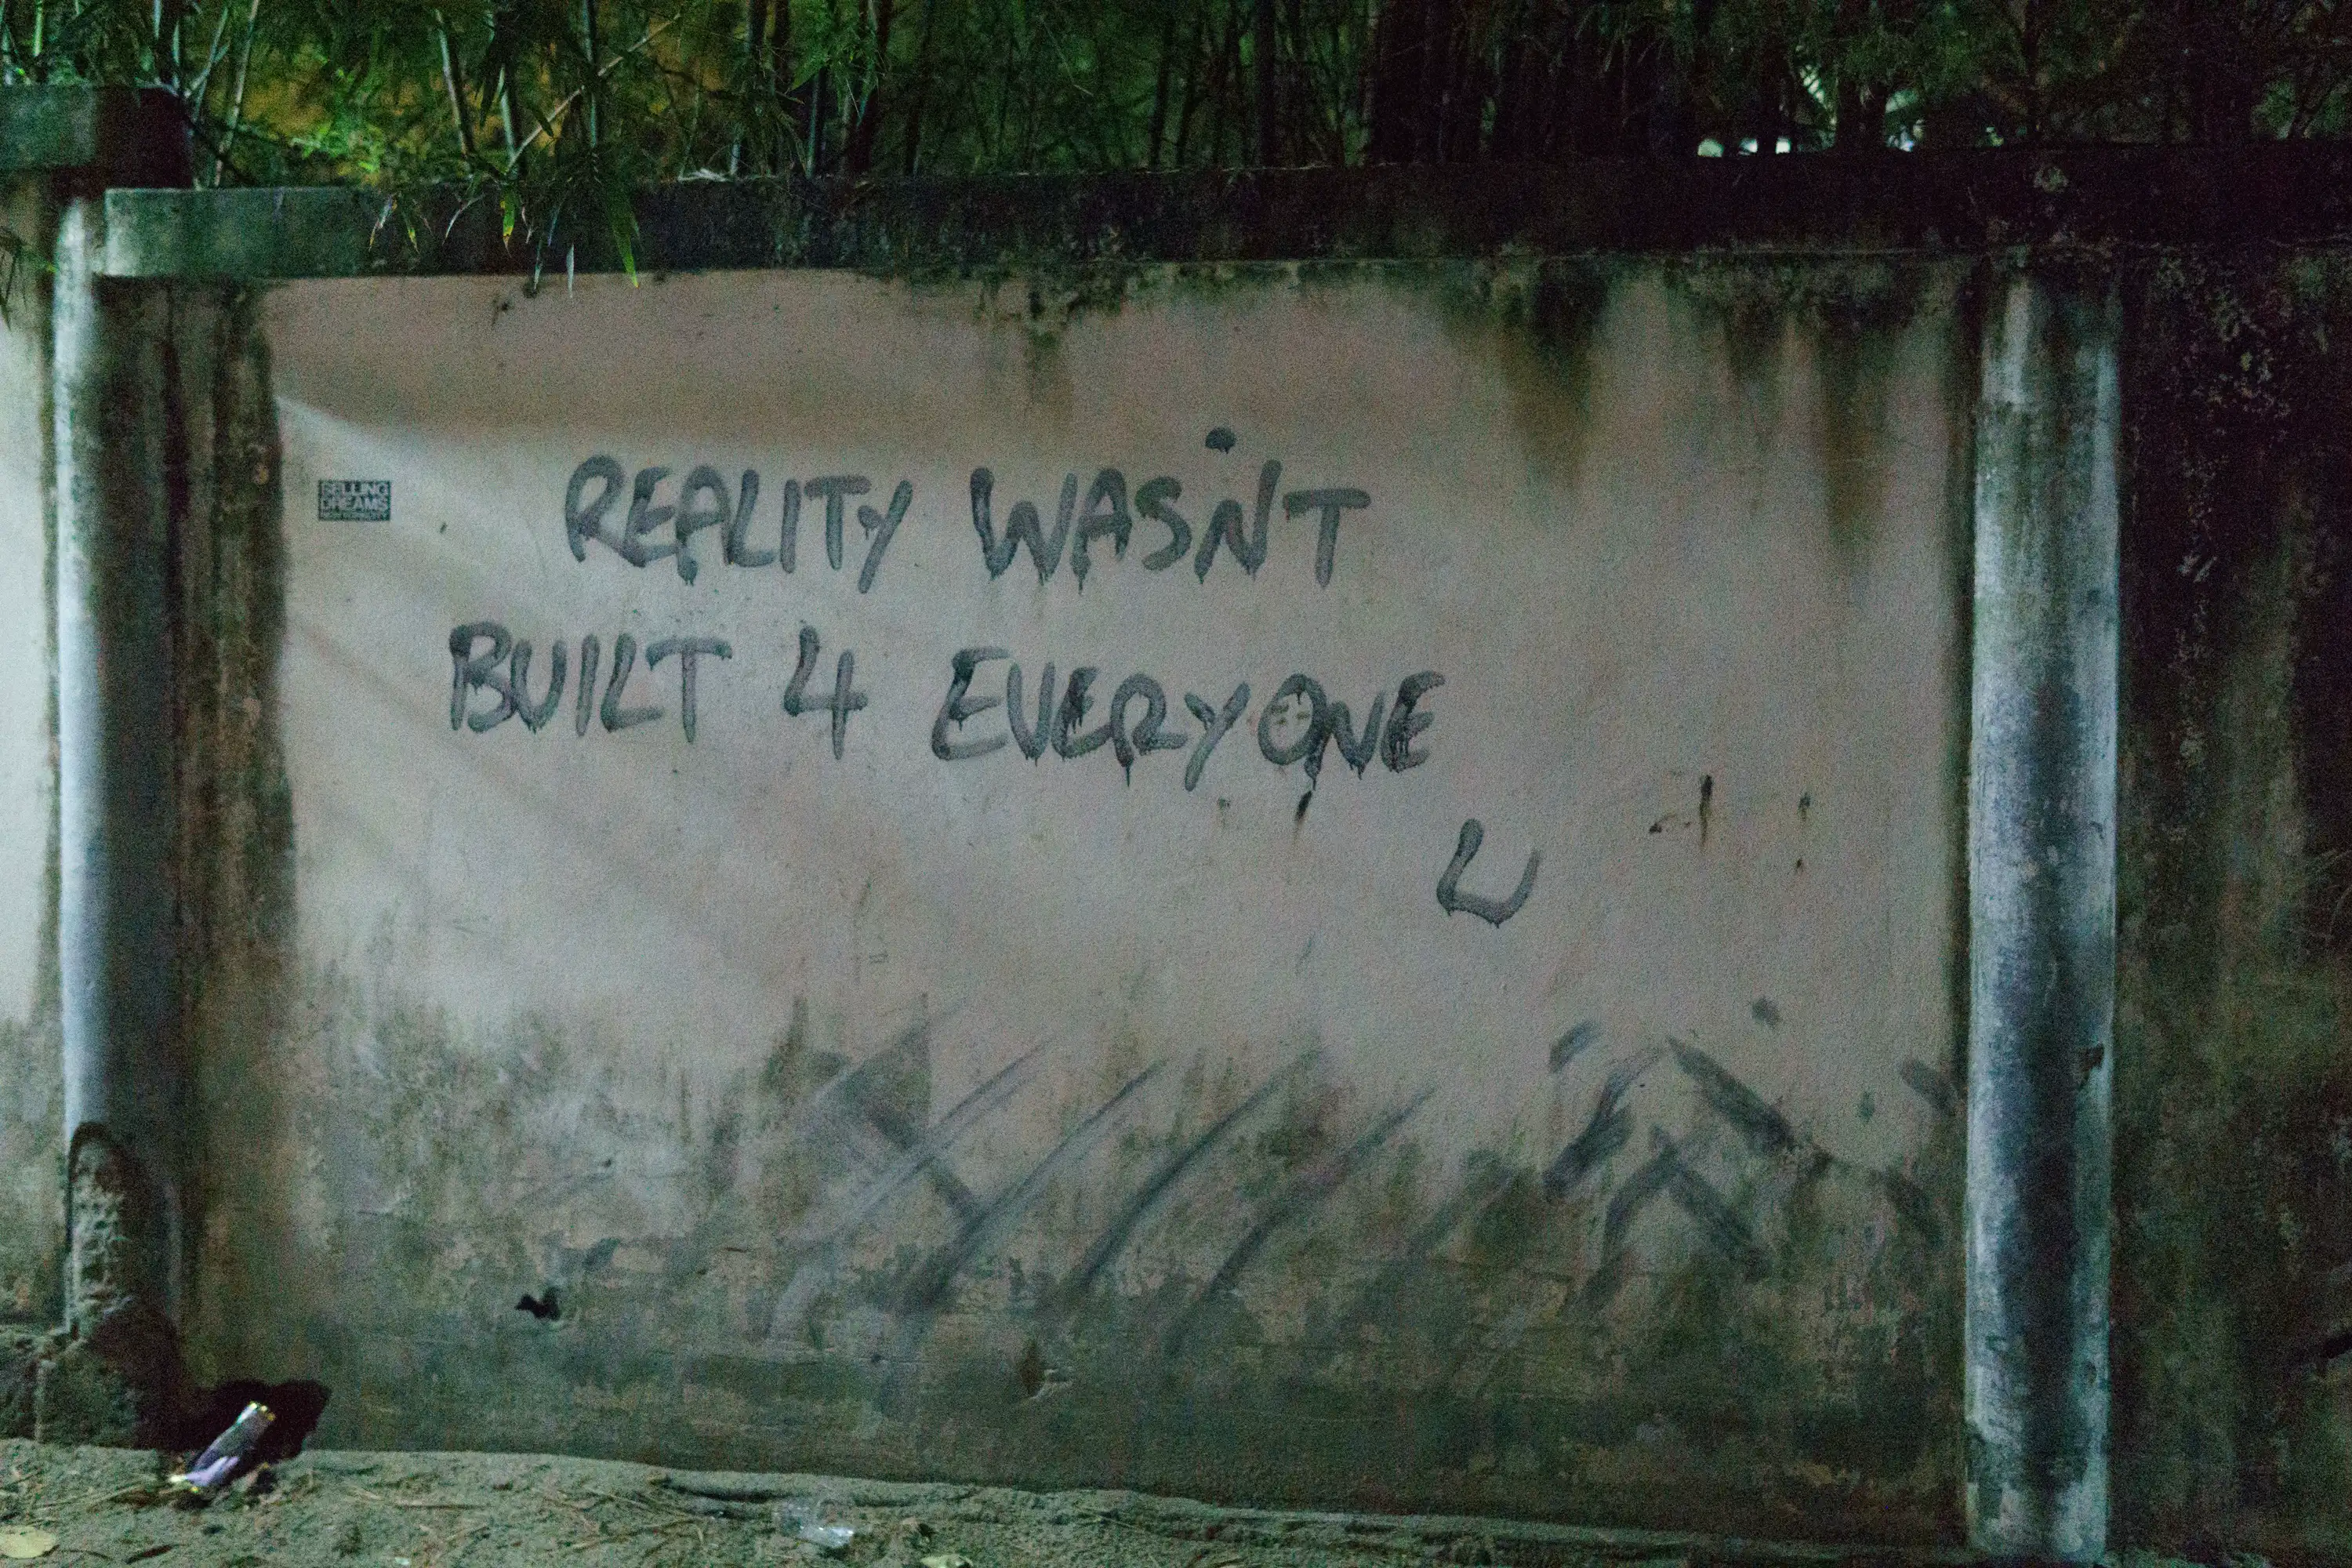 SELLING
DREAMS
REALITY WASN'T
BUILT 4 EVERYONE